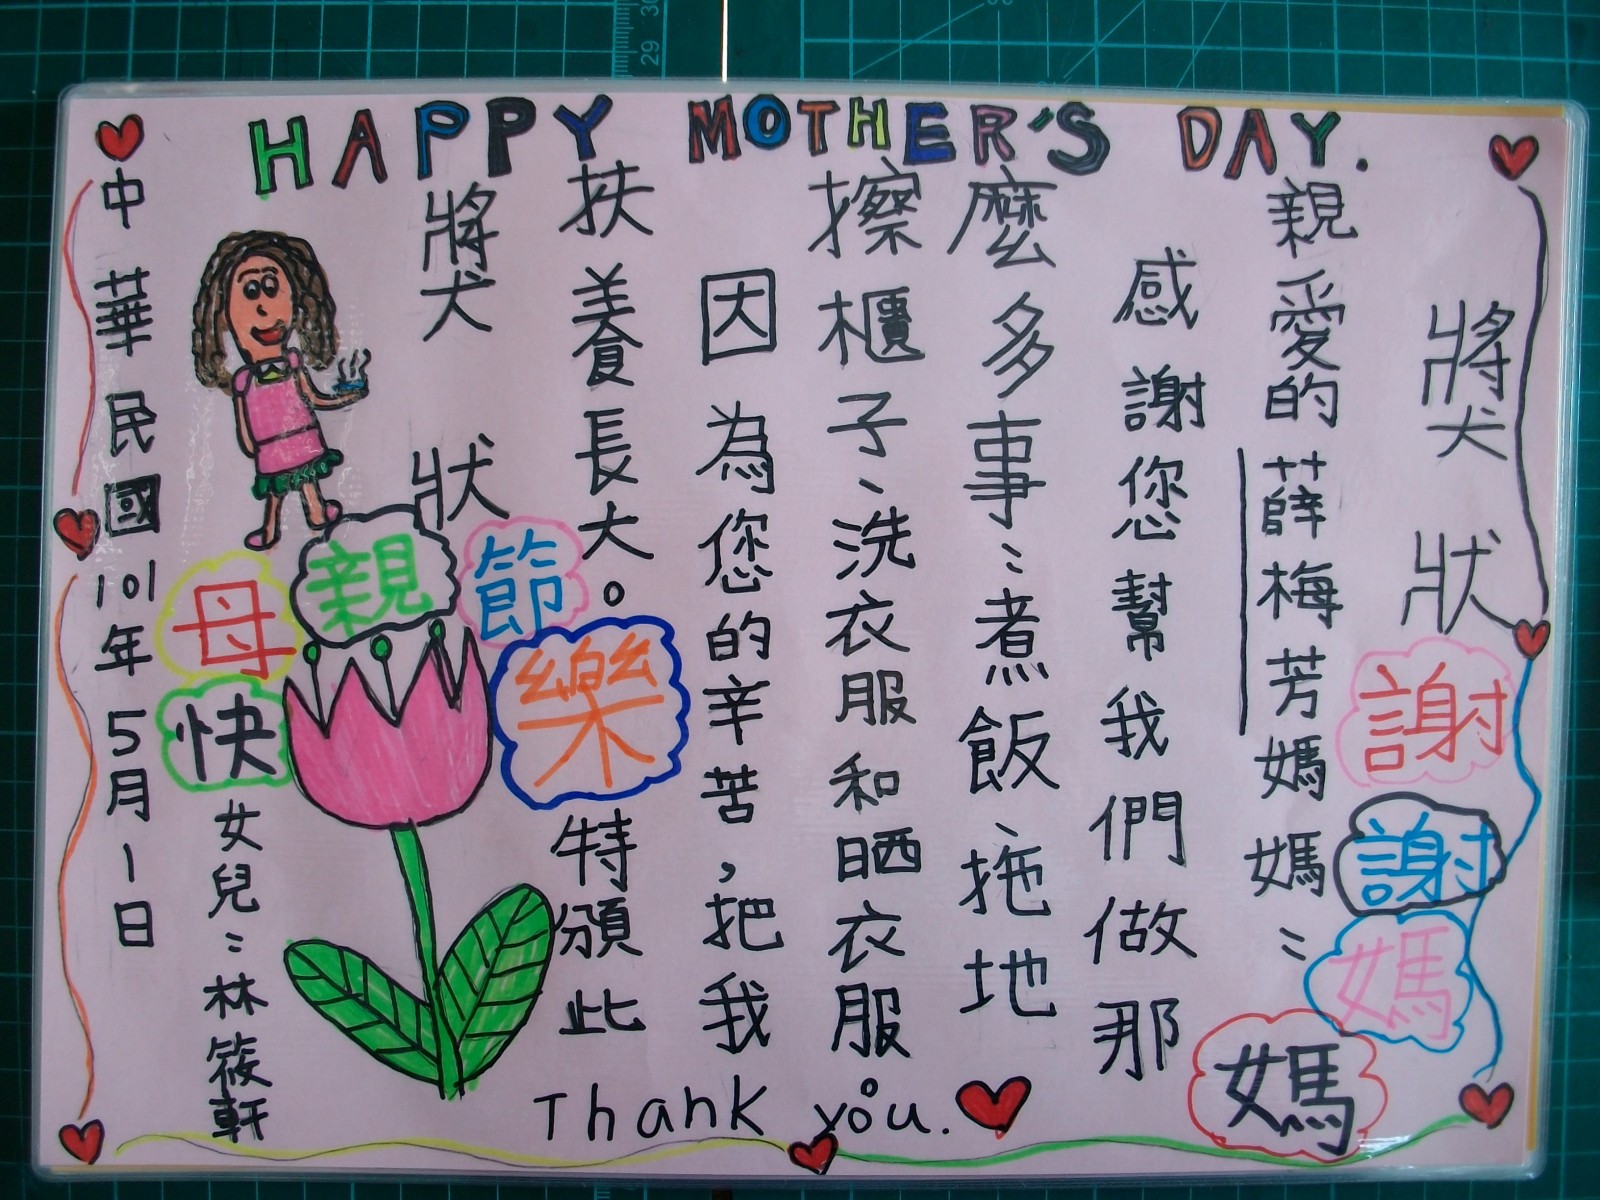 29
HAPPY MOTHER'S DAY.
獎狀
謝謝媽媽
親愛的薛梅芳媽媽：
感謝您幫我們做那
麼多事：煮飯、拖地
擦櫃子、洗衣服和晒衣服。
因為您的辛苦，把我
扶養長大。特頒此
獎狀
母親節
快樂
女兒：林筱軒
中華民國101年5月1日
Thank you.